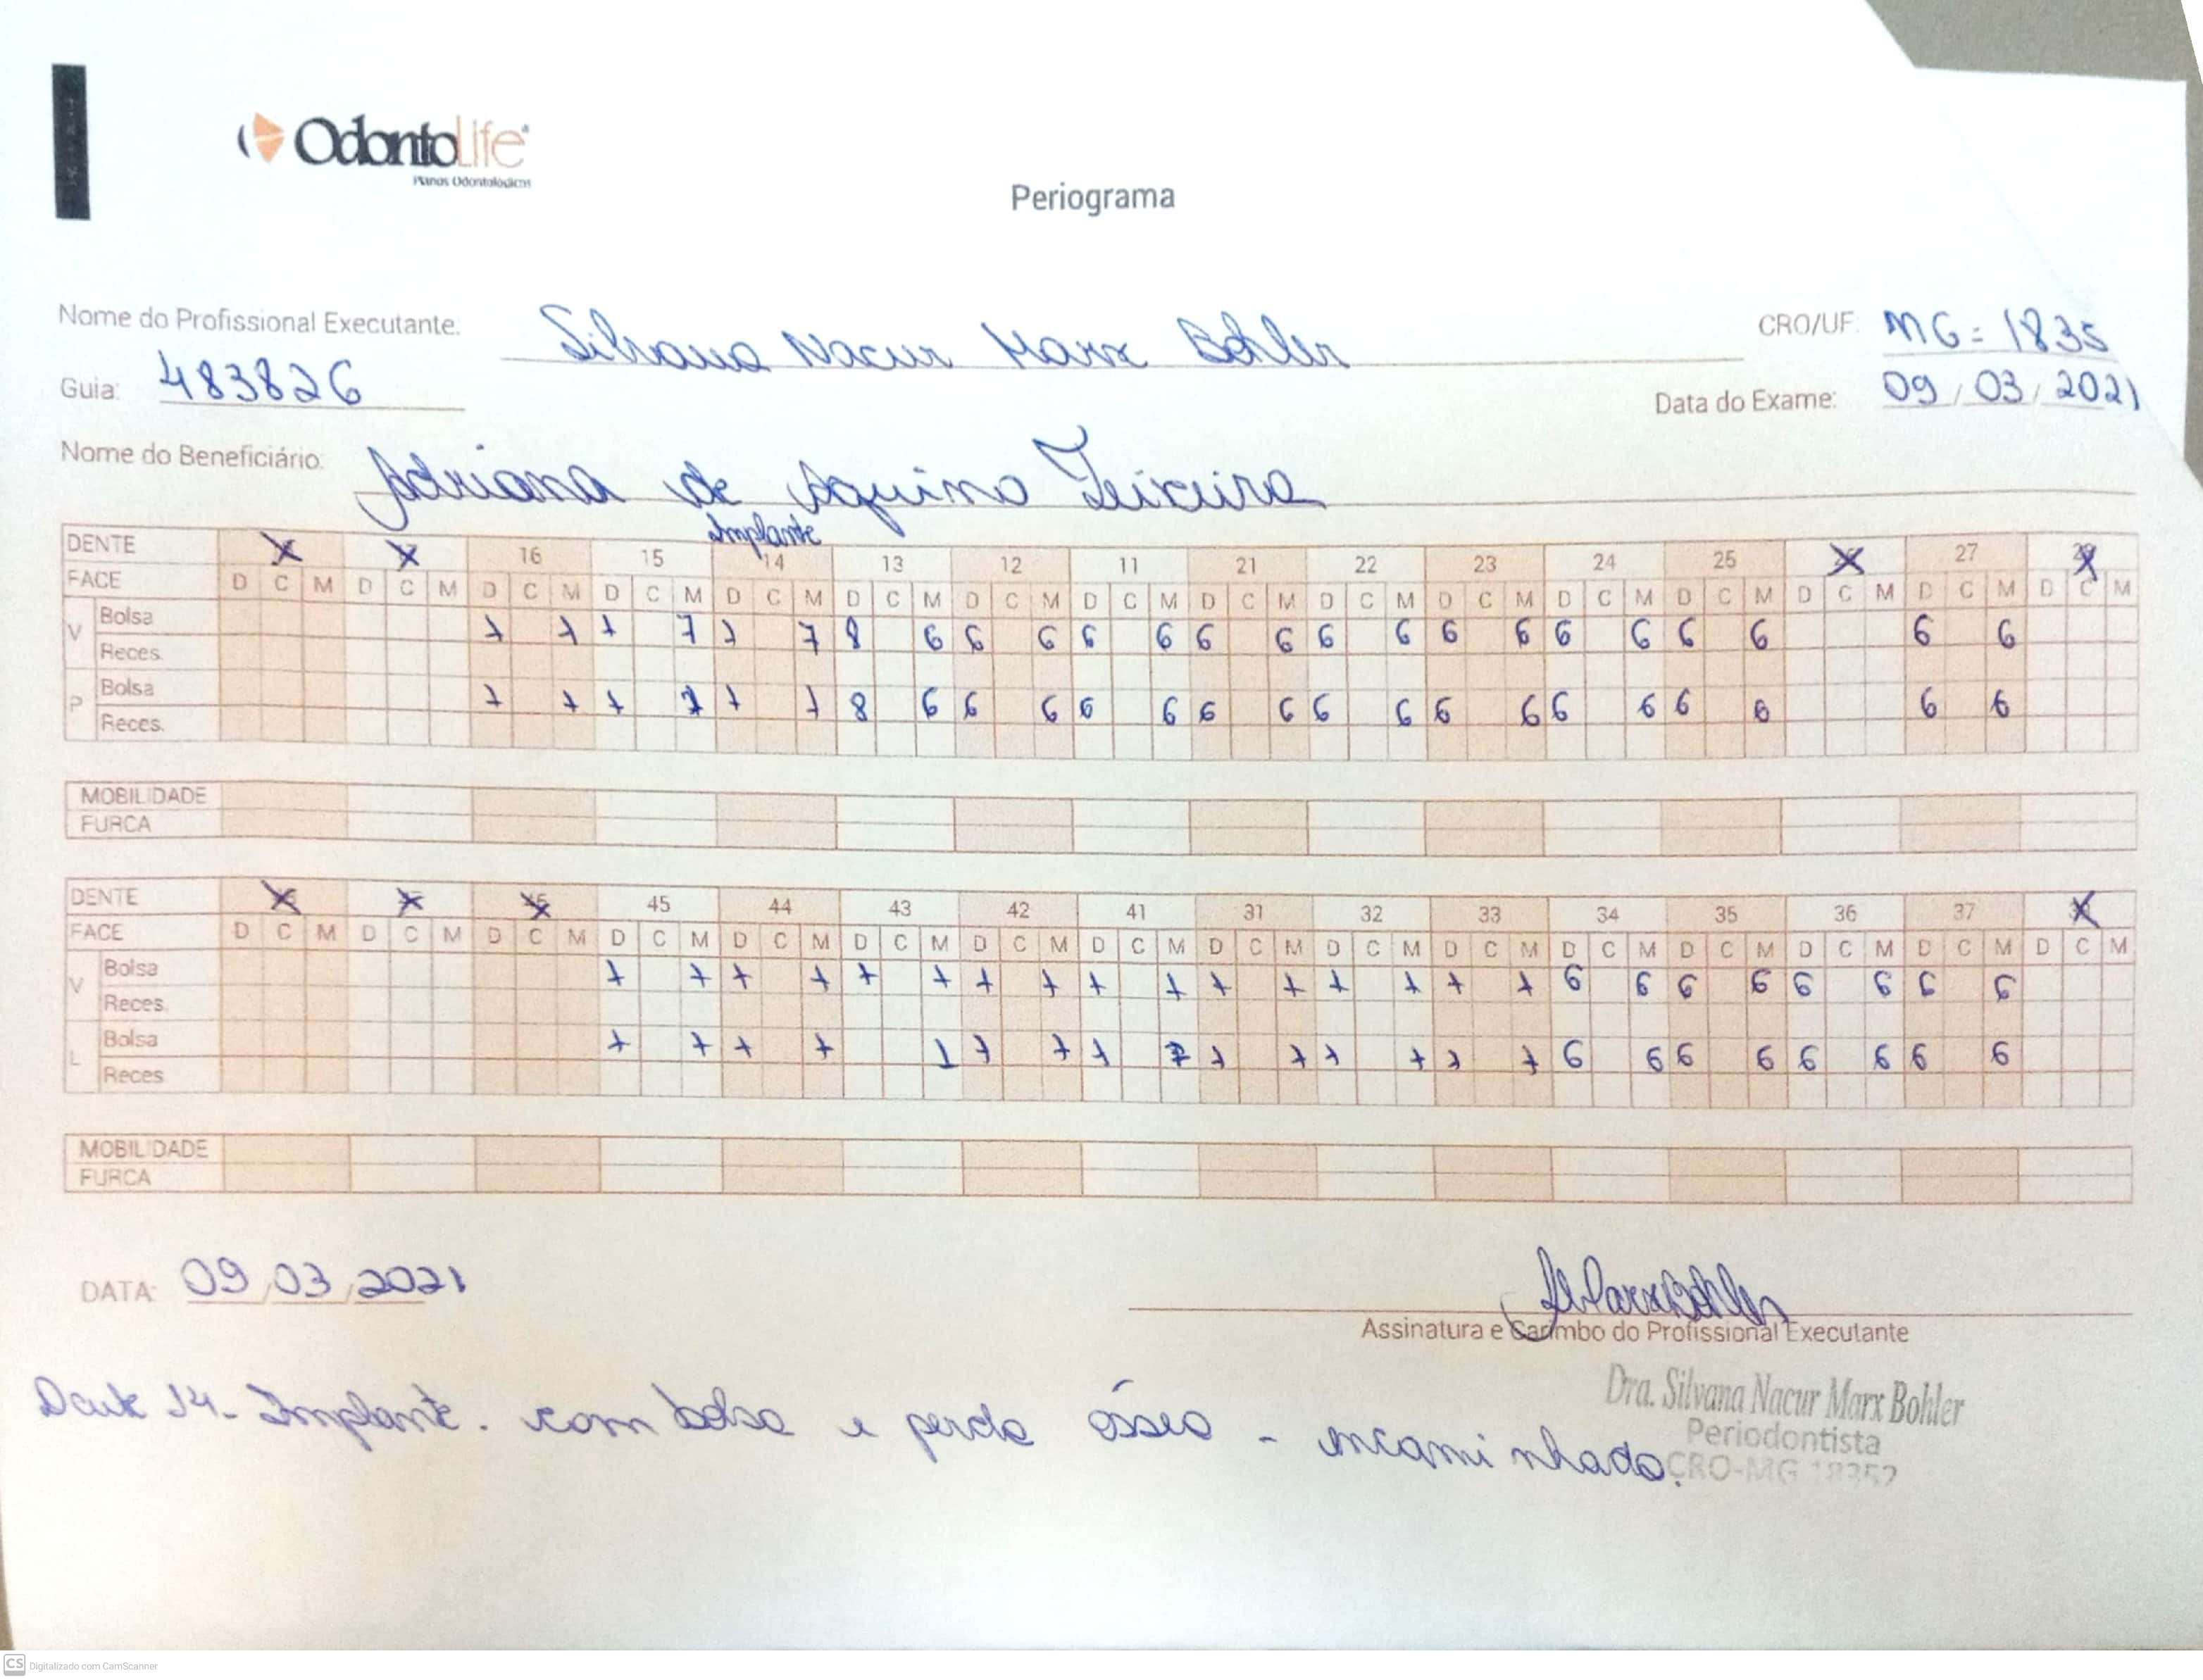 OdontoLife
Planos Odontológicos
Periograma
Nome do Profissional Executante: Silvana Nacur Marx Bohler CRO/UF: MG = 1835
Guia: 483826 Data do Exame: 09/03/2021
Nome do Beneficiário: Adriana de Aquino Teixeira
Implante
DENTE 16 15 14 13 12 11 21 22 23 24 25 27
FACE D C M D C M D C M D C M D C M D C M D C M D C M D C M D C M D C M D C M D C M D C M D C M D C M
V Bolsa 7 7 7 7 7 7 8 6 6 6 6 6 6 6 6 6 6 6 6 6 6 6 6 6
Reces.
P Bolsa 7 7 7 7 7 7 8 6 6 6 6 6 6 6 6 6 6 6 6 6 6 6 6 6
Reces.
MOBILIDADE
FURCA
DENTE 45 44 43 42 41 31 32 33 34 35 36 37
FACE D C M D C M D C M D C M D C M D C M D C M D C M D C M D C M D C M D C M D C M D C M D C M D C M
V Bolsa 7 7 7 7 7 7 7 7 7 7 7 7 7 7 7 7 6 6 6 6 6 6 6 6
Reces.
L Bolsa 7 7 7 7 7 7 7 7 7 7 7 7 7 7 7 6 6 6 6 6 6 6 6
Reces
MOBILIDADE
FURCA
DATA: 09/03/2021
Assinatura e Carimbo do Profissional Executante
Dra. Silvana Nacur Marx Bohler
Periodontista
CRO-MG 18352
Dente 14 - Implante. com bolsa e perda óssea - encaminhado.
CS Digitalizado com CamScanner